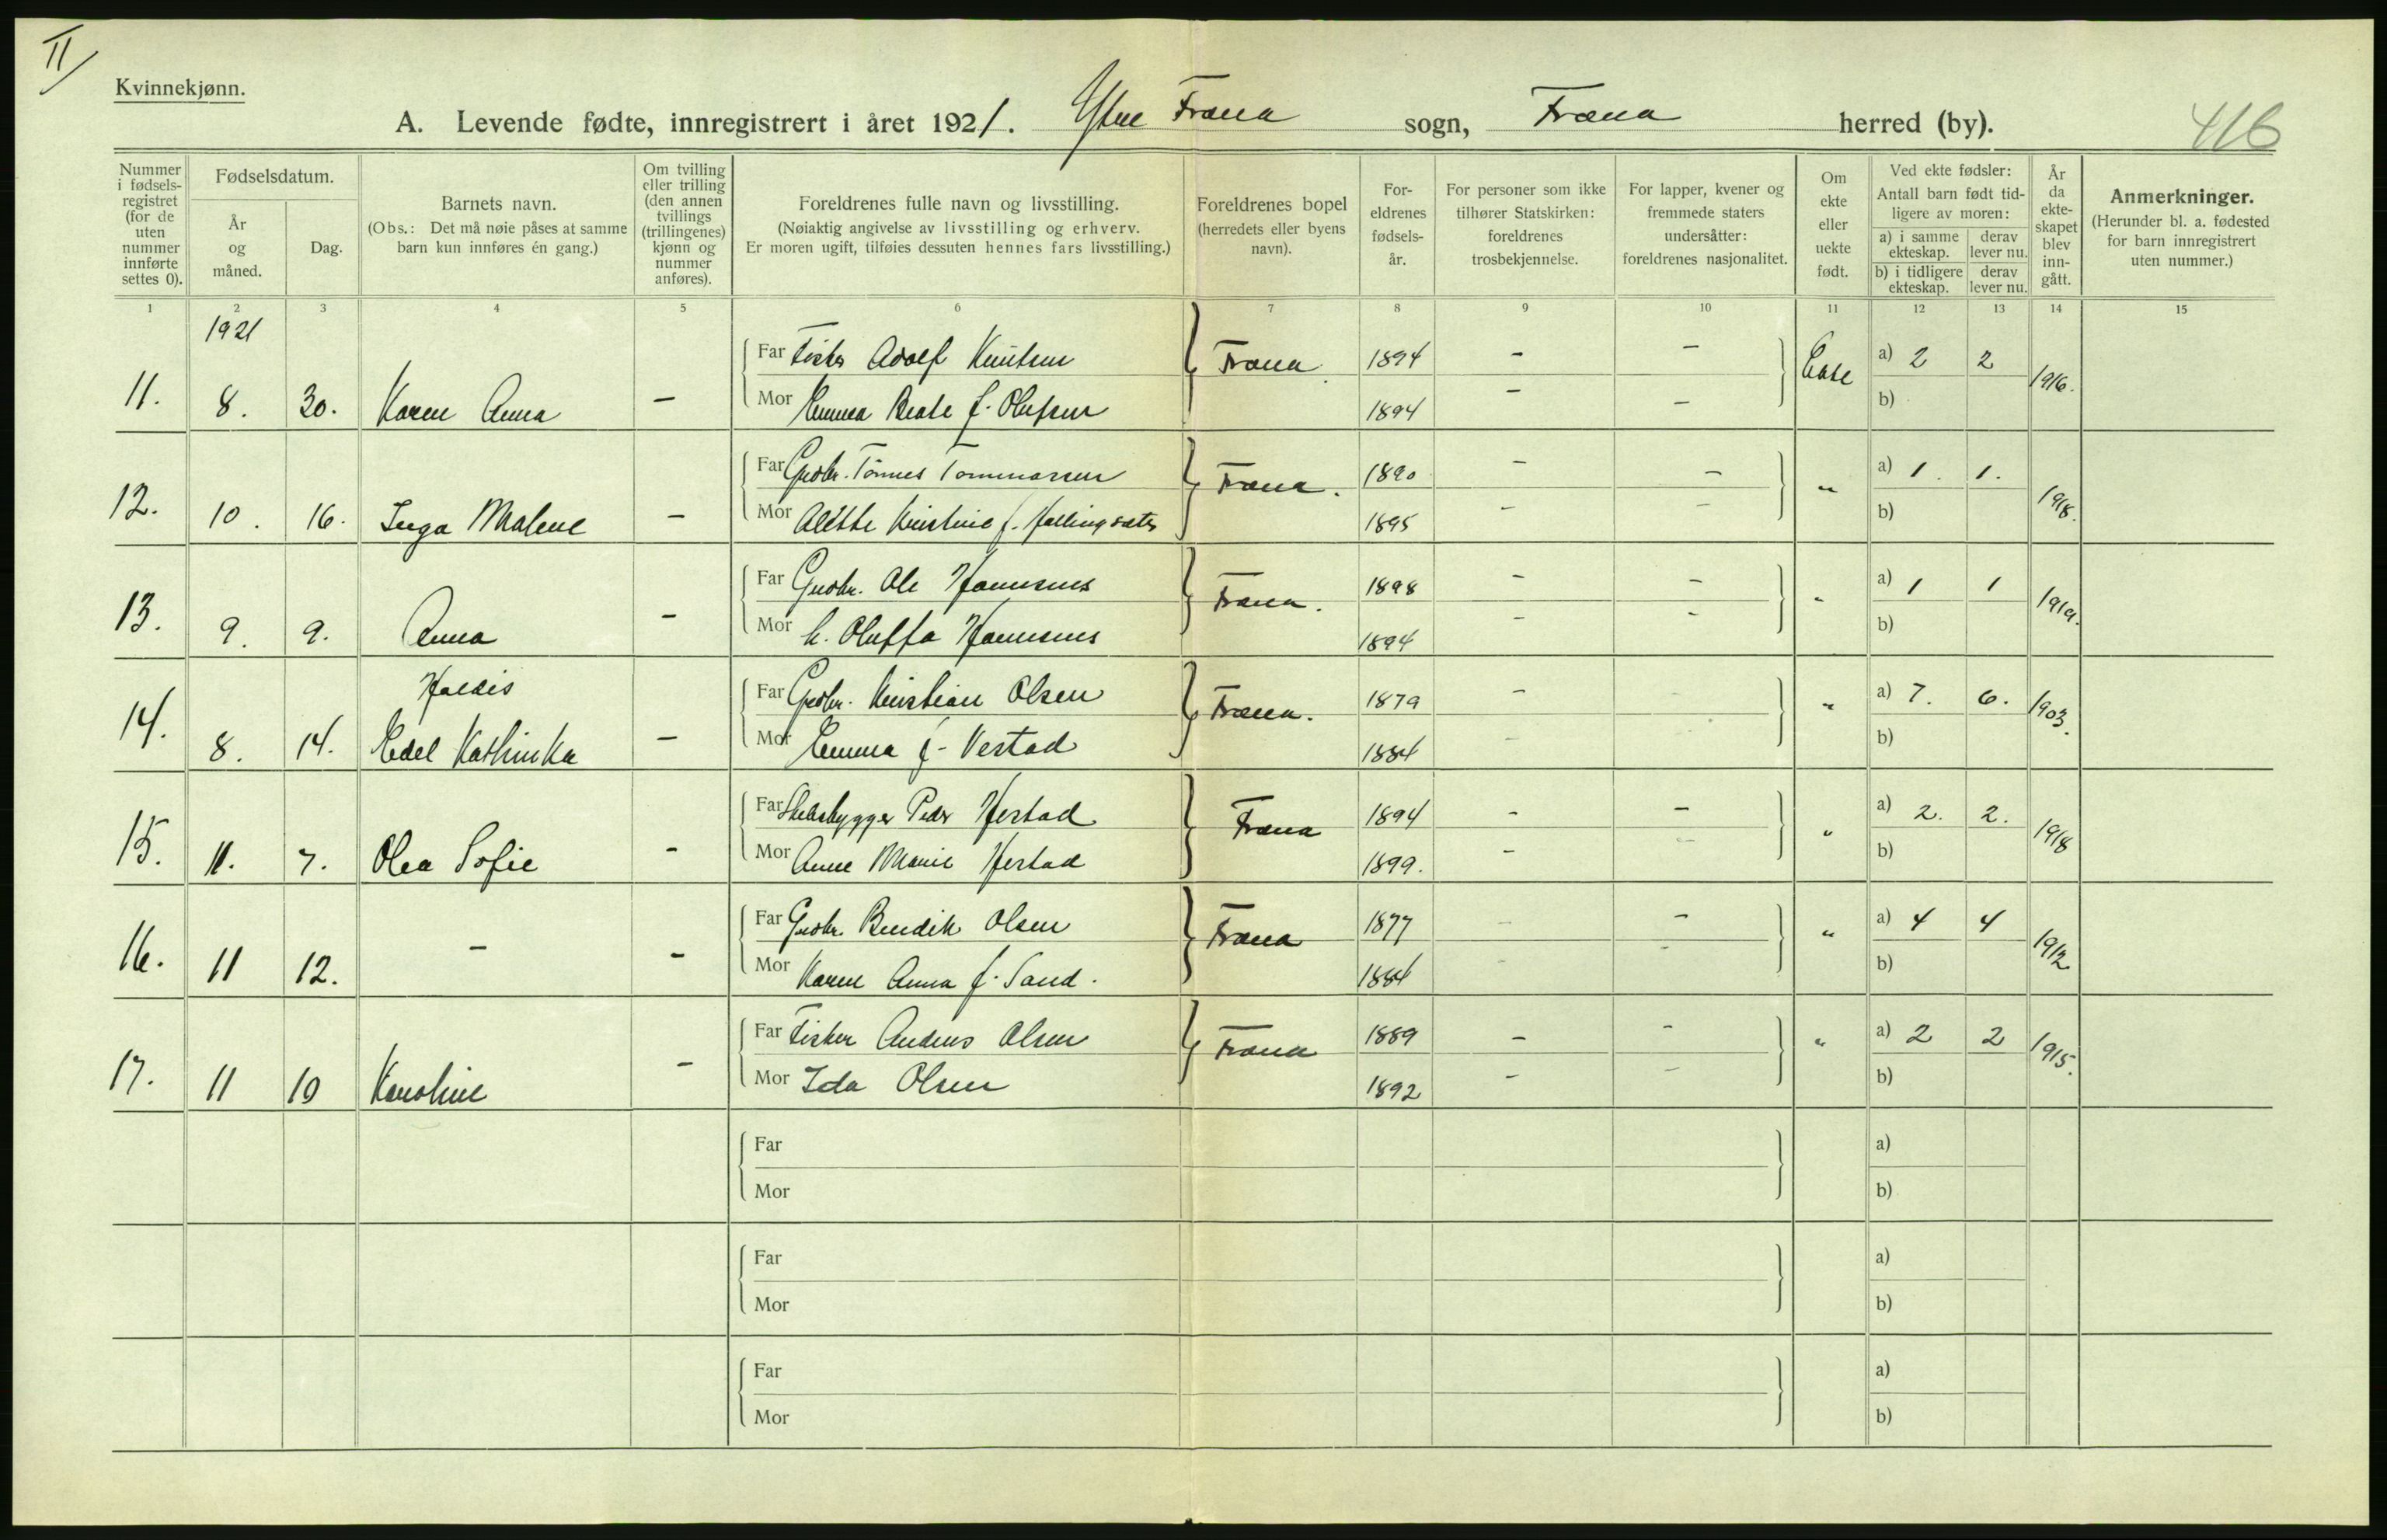 II
Kvinnekjønn.
A. Levende fødte, innregistrert i året 1921. Ytre Fræna sogn, Fræna herred (by).
416
Nummer i fødselsregistret (for de uten nummer innførte settes 0).
Fødselsdatum.
År og måned.
Dag.
Barnets navn.
(Obs.: Det må nøie påses at samme barn kun innføres én gang.)
Om tvilling eller trilling (den annen tvillings (trillingenes) kjønn og nummer anføres).
Foreldrenes fulle navn og livsstilling.
(Nøiaktig angivelse av livsstilling og erhverv.
Er moren ugift, tilføies dessuten hennes fars livsstilling.)
Foreldrenes bopel (herredets eller byens navn).
Foreldrenes fødselsår.
For personer som ikke tilhører Statskirken: foreldrenes trosbekjennelse.
For lapper, kvener og fremmede staters undersåtter: foreldrenes nasjonalitet.
Om ekte eller uekte født.
Ved ekte fødsler:
Antall barn født tidligere av moren:
a) i samme ekteskap. derav lever nu.
b) i tidligere ekteskap. derav lever nu.
År da ekteskapet blev inngått.
Anmerkninger.
(Herunder bl. a. fødested for barn innregistrert uten nummer.)
1 2 3 4 5 6 7 8 9 10 11 12 13 14 15
1921
Far Fisker Adolf Knutsen Fræna 1894 - - Ekte a) 2 2 1916.
11. 8. 30. Karen Anna - Mor Emma Beate f. Olufsen 1894 - - b)
Far Grdbr. Tønnes Tommassen Fræna. 1890 - - " a) 1. 1. 1918.
12. 10. 16. Inga Malene - Mor Alette Kristine f. Hallingsæter 1895 - - b)
Far Grdbr. Ole 1898 - - " a) 1 1 1919.
13. 9. 9. Anna - Fræna. Mor h. Oluffa 1894 - - b)
Haldis
Far Grdbr. Kristian Olsen Fræna. 1879 - " a) 7. 6. 1903.
14. 8. 14. Edel Kathinka - Mor Emma f. Vestad 1884 b)
Far Peder Hestad Fræna 1894 - - " a) 2. 2. 1918
15. 11. 7. Olea Sofie - Mor Anne Marie Hestad 1899. - - b)
Far Grdbr. Bendik Olsen Fræna 1877 - - " a) 4 4 1912.
16. 11 12. - - Mor Karen Anna f. Sand. 1884 - - b)
Far Fisker Andreas Olsen Fræna 1889 - - " a) 2 2 1915.
17. 11 10 Karoline - Mor Ida Olsen 1892 - - b)
Far a)
Mor b)
Far a)
Mor b)
Far a)
Mor b)